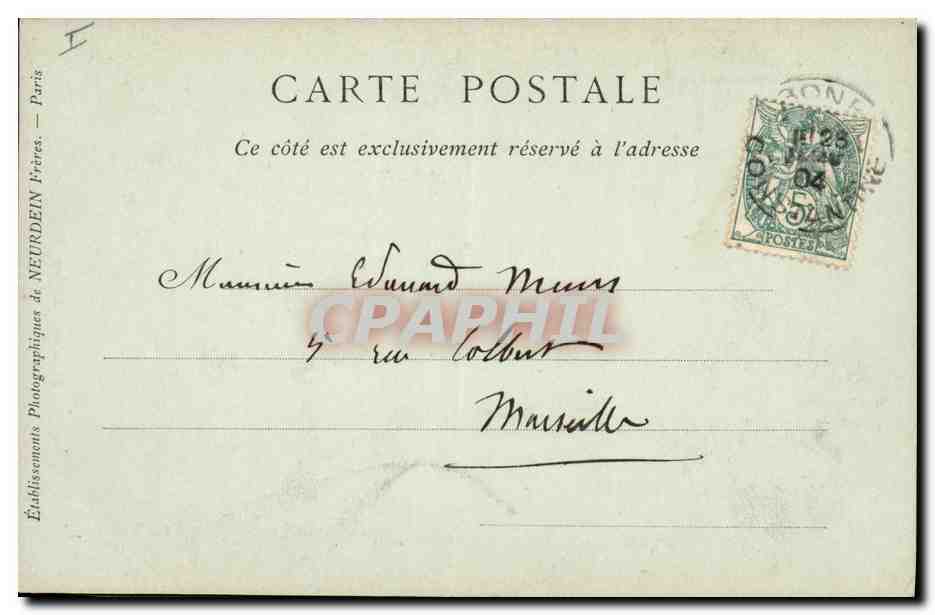 I
CARTE POSTALE
Ce côté est exclusivement réservé à l'adresse
BONE
25
04
CONSTANTINE
5
POSTES
Monsieur Edouard
CPAPHIL
5 rue Colbert
Marseille
Établissements Photographiques de NEURDEIN Frères. — Paris